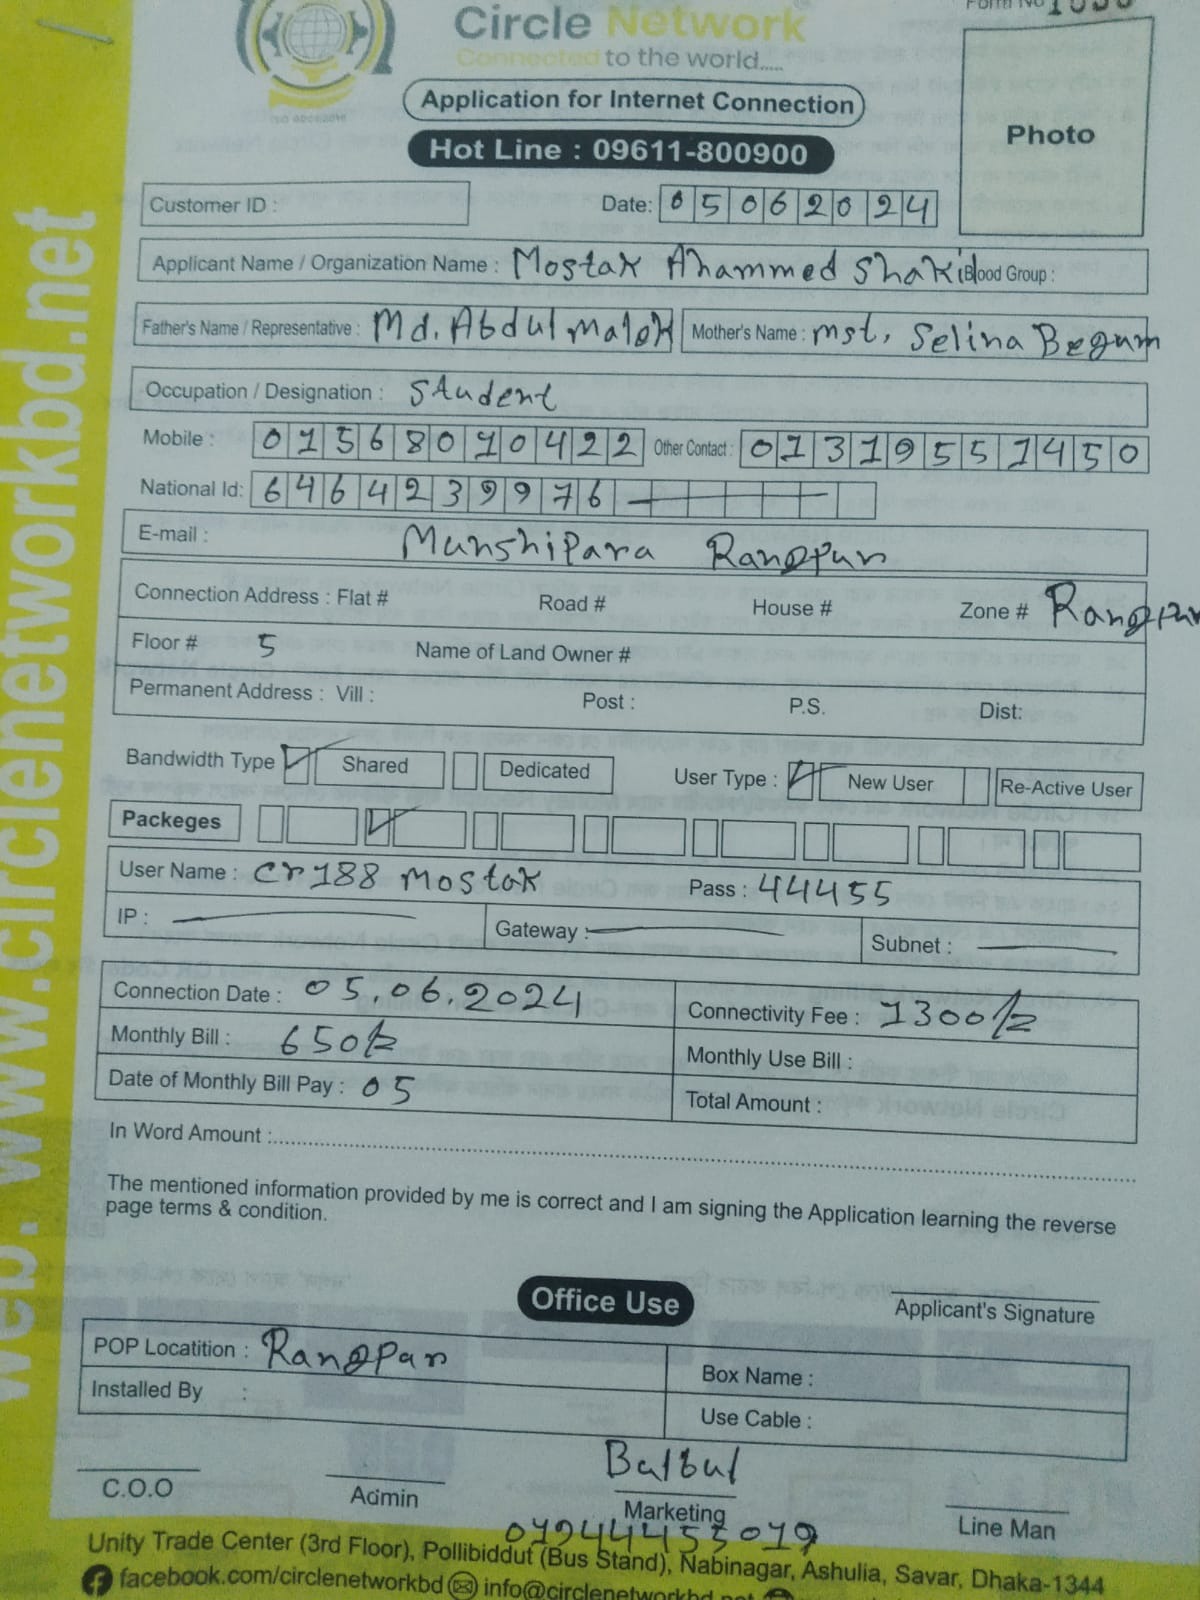 Circle Network
Connected to the world.....
Application for Internet Connection
Hot Line : 09611-800900
Photo
Customer ID :
Date: 05062024
Applicant Name / Organization Name : Mostak Ahammed Shakil Blood Group :
Father's Name / Representative : Md. Abdul Malek Mother's Name : mst. Selina Begum
Occupation / Designation : Student
Mobile : 01568010422 Other Contact : 01319551450
National Id: 6464239976
E-mail : Munshipara Rangpur
Connection Address : Flat # Road # House # Zone # Rangpur
Floor # 5 Name of Land Owner #
Permanent Address : Vill : Post : P.S. Dist:
Bandwidth Type Shared Dedicated User Type : New User Re-Active User
Packeges
User Name : Cr188 Mostak Pass : 44455
IP : Gateway : Subnet :
Connection Date : 05.06.2024 Connectivity Fee : 1300/=
Monthly Bill : 650/= Monthly Use Bill :
Date of Monthly Bill Pay : 05 Total Amount :
In Word Amount :
The mentioned information provided by me is correct and I am signing the Application learning the reverse
page terms & condition.
Office Use
Applicant's Signature
POP Locatition : Rangpur Box Name :
Installed By : Use Cable :
Bulbul
C.O.O Admin Marketing Line Man
Unity Trade Center (3rd Floor), Pollibiddut (Bus Stand), Nabinagar, Ashulia, Savar, Dhaka-1344
facebook.com/circlenetworkbd info@circlenetworkbd.net
web: www.circlenetworkbd.net